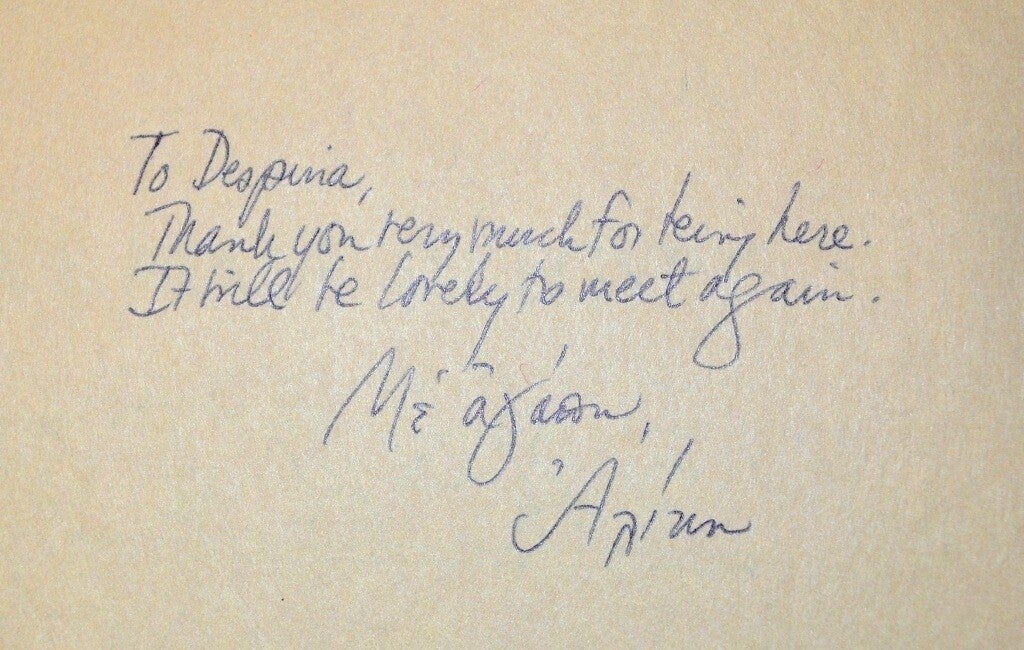 To Despina,
Thank you very much for being here.
It will be lovely to meet again.
Μὲ ἀγάπη,
Ἀλίκη